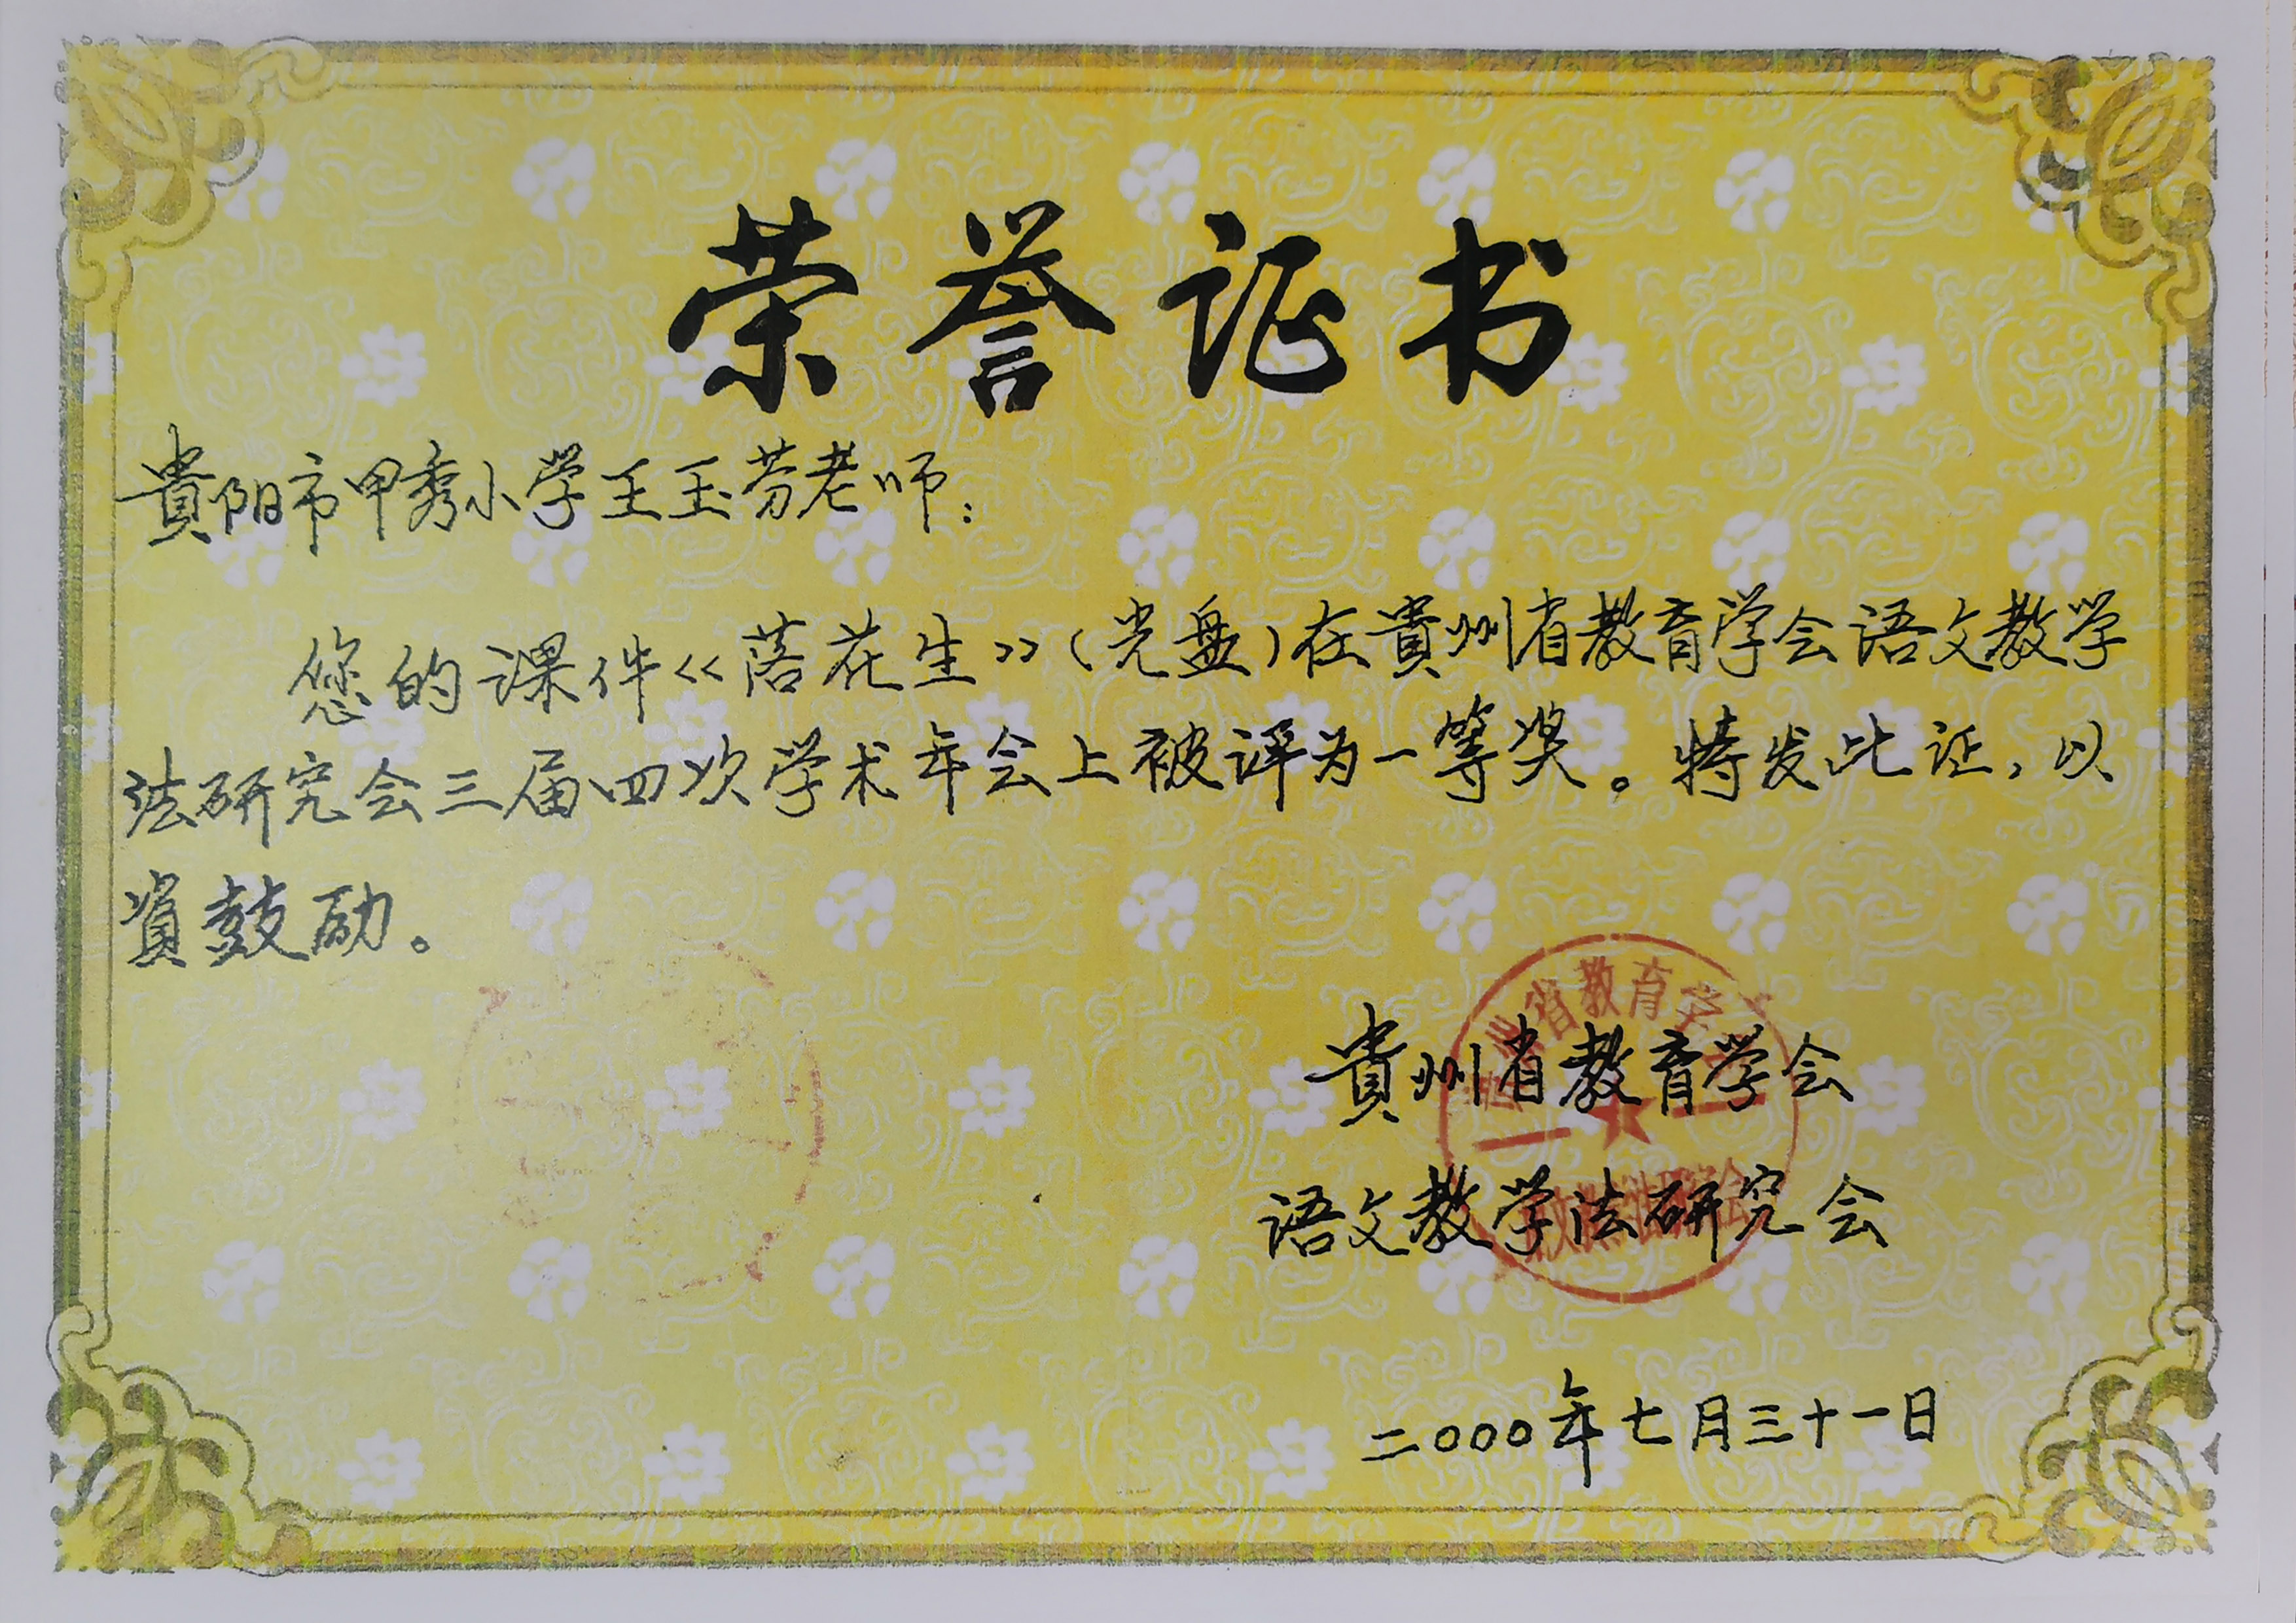 荣誉证书
貴阳市甲秀小学王玉芬老师：
您的课件《落花生》（光盘）在貴州省教育学会语文教学
法研究会三届四次学术年会上被评为一等奖。特发此证，以
資鼓励。
省教育学
貴州省教育学会
语文教学法研究会
二000年七月三十一日